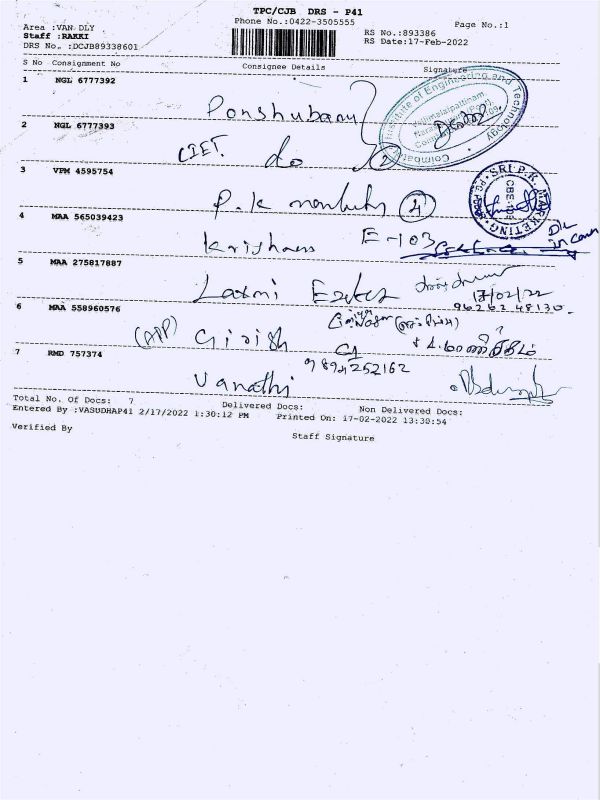 TPC/CJB DRS - P41
Phone No.:0422-3505555
Page No.:1
Area :VAN DLY
Staff :RAKKI
DRS No. :DCJB89338601
RS No.:893386
RS Date:17-Feb-2022
S No Consignment No Consignee Details Signature
1 NGL 6777392
Ponshubanu
2 NGL 6777393
CIET do 2
3 VPM 4595754
P.K 4
4 MAA 565039423
E-103
5 MAA 275817887
Laxmi
17/02/22
96262 48130
6 MAA 558960576
(APP) Girish
7 RMD 757374
9894252162
Vanathi
Total No. Of Docs: 7 Delivered Docs: Non Delivered Docs:
Entered By :VASUDHAP41 2/17/2022 1:30:12 PM Printed On: 17-02-2022 13:30:54
Verified By
Staff Signature
Institute of Engineering and Technology
Coimbatore
SRI P.K. MARKETING